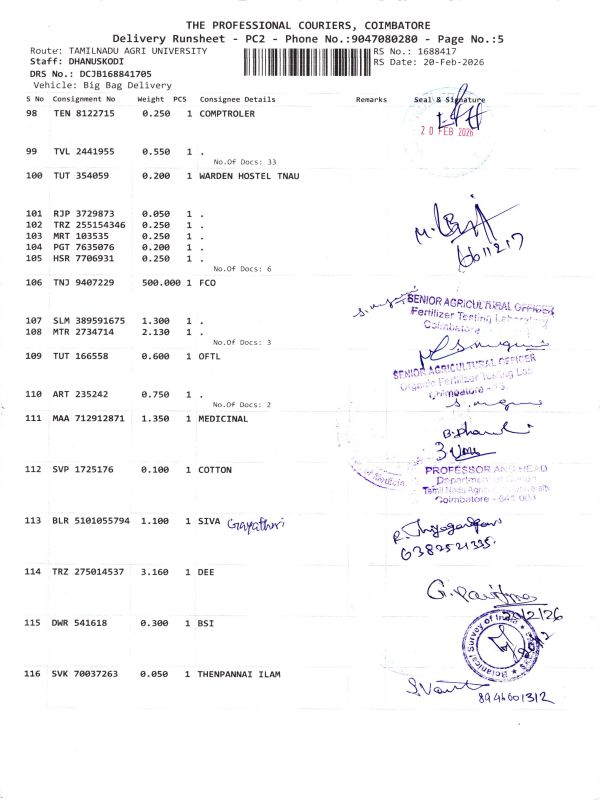 THE PROFESSIONAL COURIERS, COIMBATORE
Delivery Runsheet - PC2 - Phone No.:9047080280 - Page No.:5
Route: TAMILNADU AGRI UNIVERSITY RS No.: 1688417
Staff: DHANUSKODI RS Date: 20-Feb-2026
DRS No.: DCJB168841705
Vehicle: Big Bag Delivery
S No Consignment No Weight PCS Consignee Details Remarks Seal & Signature
98 TEN 8122715 0.250 1 COMPTROLER
20 FEB 2026
99 TVL 2441955 0.550 1 .
No.Of Docs: 33
100 TUT 354059 0.200 1 WARDEN HOSTEL TNAU
101 RJP 3729873 0.050 1 .
102 TRZ 255154346 0.250 1 .
103 MRT 103535 0.250 1 .
104 PGT 7635076 0.200 1 .
105 HSR 7706931 0.250 1 .
No.Of Docs: 6
106 TNJ 9407229 500.000 1 FCO
SENIOR AGRICULTURAL OFFICER
Fertilizer Testing Laboratory
Coimbatore
107 SLM 389591675 1.300 1 .
108 MTR 2734714 2.130 1 .
No.Of Docs: 3
109 TUT 166558 0.600 1 OFTL
SENIOR AGRICULTURAL OFFICER
Organic Fertilizer Testing Lab
Coimbatore
110 ART 235242 0.750 1 .
No.Of Docs: 2
111 MAA 712912871 1.350 1 MEDICINAL
112 SVP 1725176 0.100 1 COTTON
PROFESSOR AND HEAD
Department of Cotton
Tamil Nadu Agricultural University
Coimbatore - 641 003
113 BLR 5101055794 1.100 1 SIVA Gayathri
6382521335
114 TRZ 275014537 3.160 1 DEE
115 DWR 541618 0.300 1 BSI
20/2/26
Botanical Survey of India
116 SVK 70037263 0.050 1 THENPANNAI ILAM
8946001312